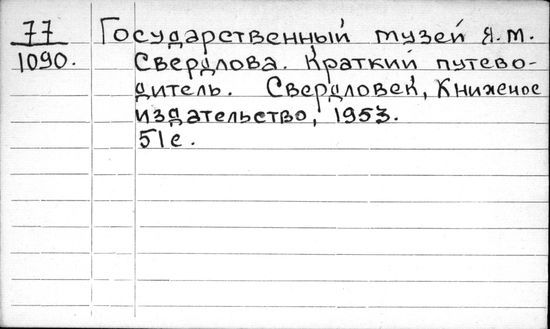 77 Государственный музей Я.М.
1090. Свердлова. Краткий путево-
дитель. Свердловск, Книжное
издательство, 1953.
51 с.